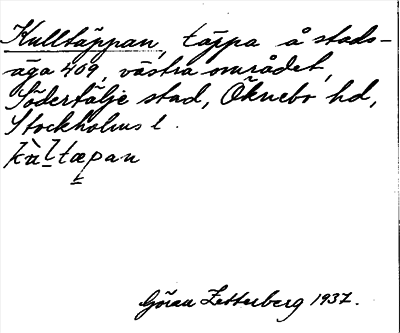 Kulltäppan, täppa å stads-
äga 409, västra området,
Södertälje stad, Öknebo hd,
Stockholms l.
kùltæpan
Göran Zetterberg 1937.